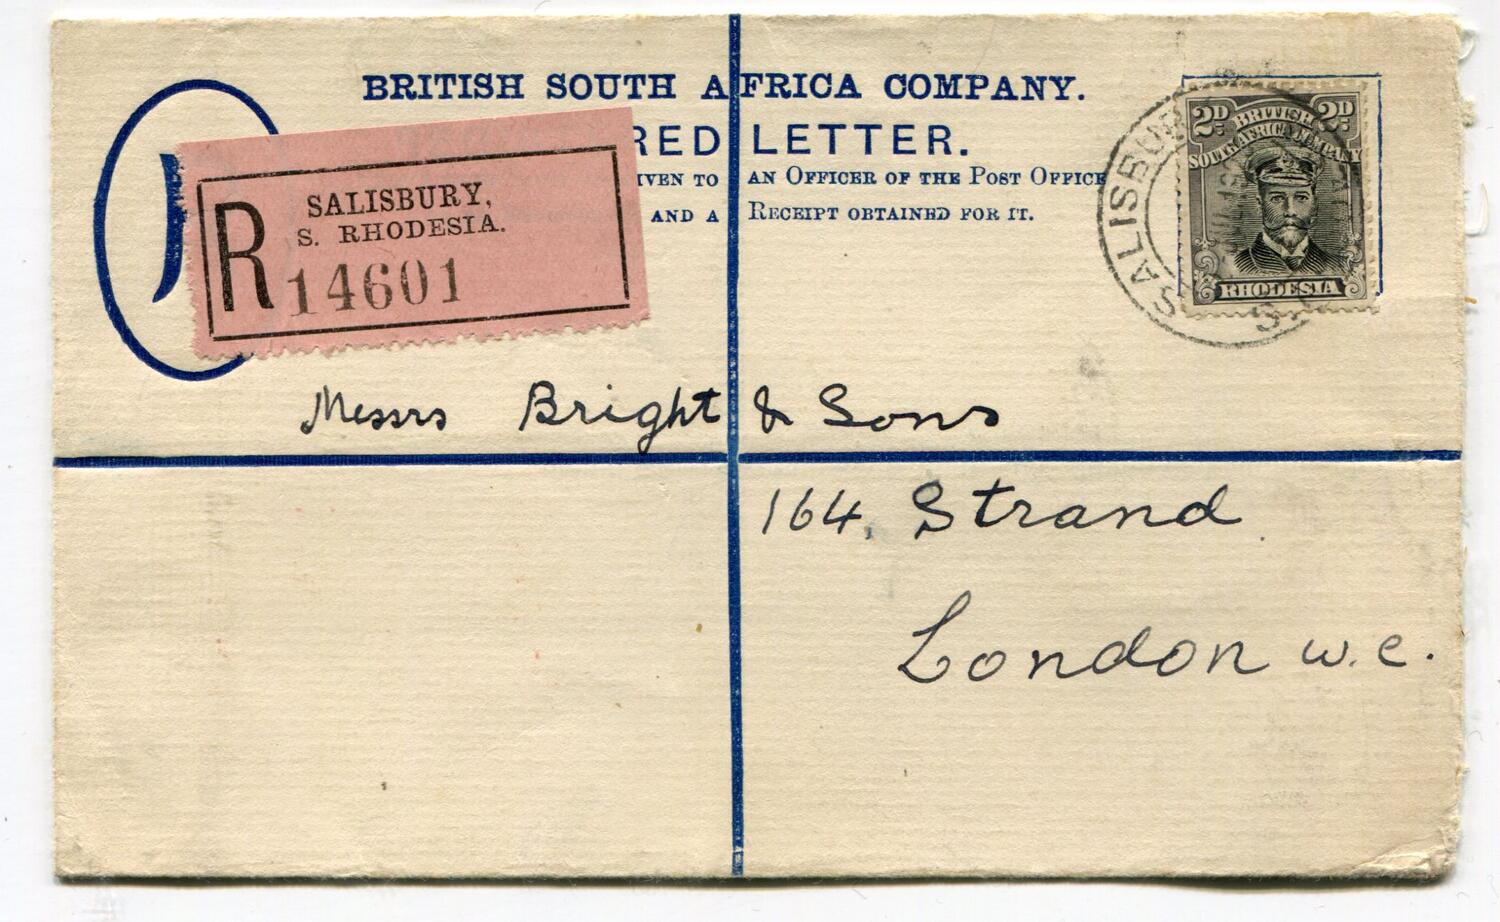 BRITISH SOUTH AFRICA COMPANY.
RED LETTER.
IVEN TO AN OFFICER OF THE POST OFFICE
AND A RECEIPT OBTAINED FOR IT.
R
SALISBURY,
S. RHODESIA.
14601
2D 2D
BRITISH
SOUTH AFRICA COMPANY
RHODESIA
SALISBURY
Messrs Bright & Sons
164, Strand
London W.C.